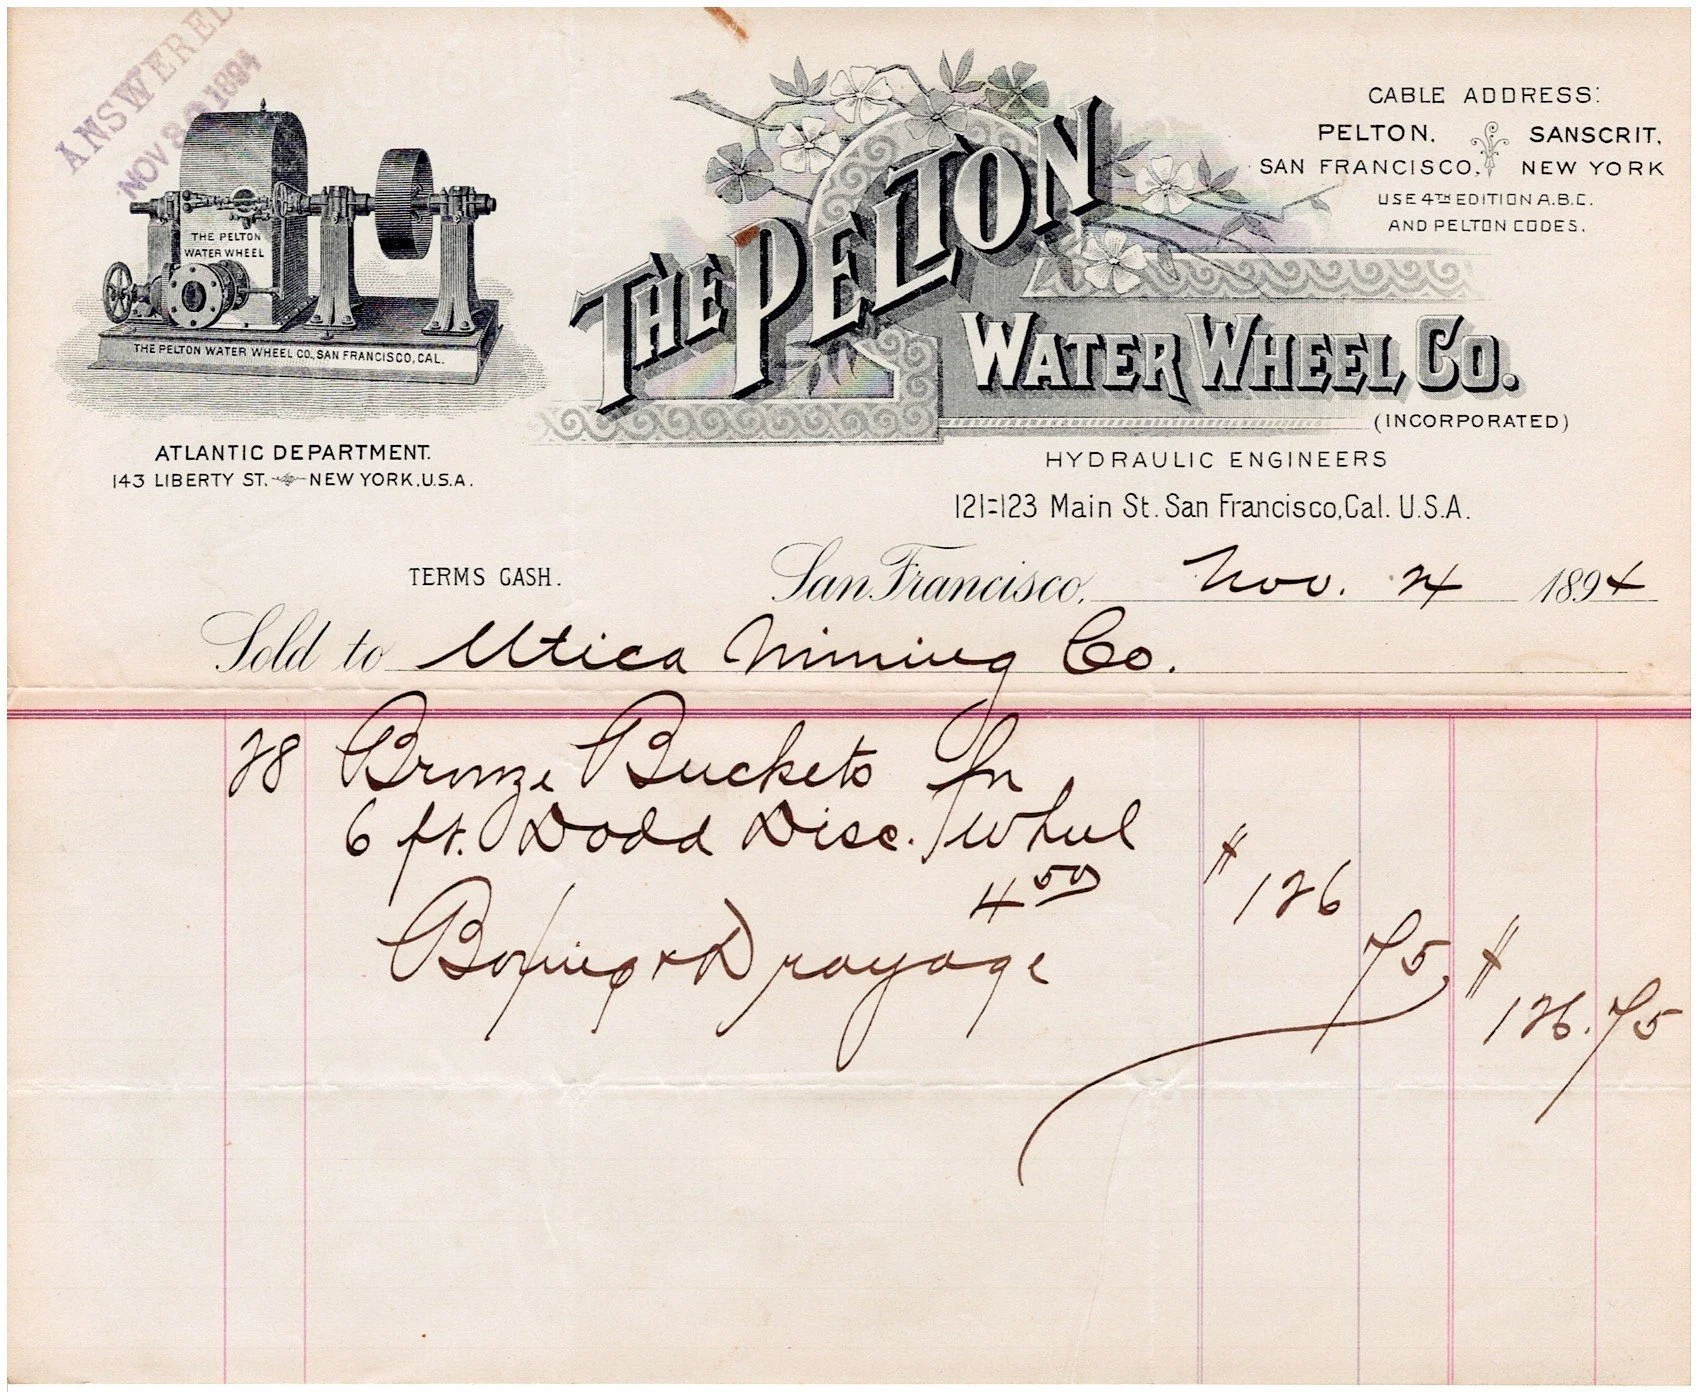 ANSWERED.
NOV 30 1894
THE PELTON
WATER WHEEL
THE PELTON WATER WHEEL CO., SAN FRANCISCO, CAL.
ATLANTIC DEPARTMENT.
143 LIBERTY ST. NEW YORK, U.S.A.
THE PELTON
WATER WHEEL CO.
(INCORPORATED)
HYDRAULIC ENGINEERS
121-123 Main St. San Francisco, Cal. U.S.A.
CABLE ADDRESS:
PELTON, SANSCRIT,
SAN FRANCISCO, NEW YORK
USE 4TH EDITION A.B.C.
AND PELTON CODES.
TERMS CASH. San Francisco, Nov. 24 1894
Sold to Utica Mining Co.
28 Bronze Buckets for
6 ft. Dodd Disc. Wheel
4 50 $ 126
Boxing & Drayage 75 $ 126.75